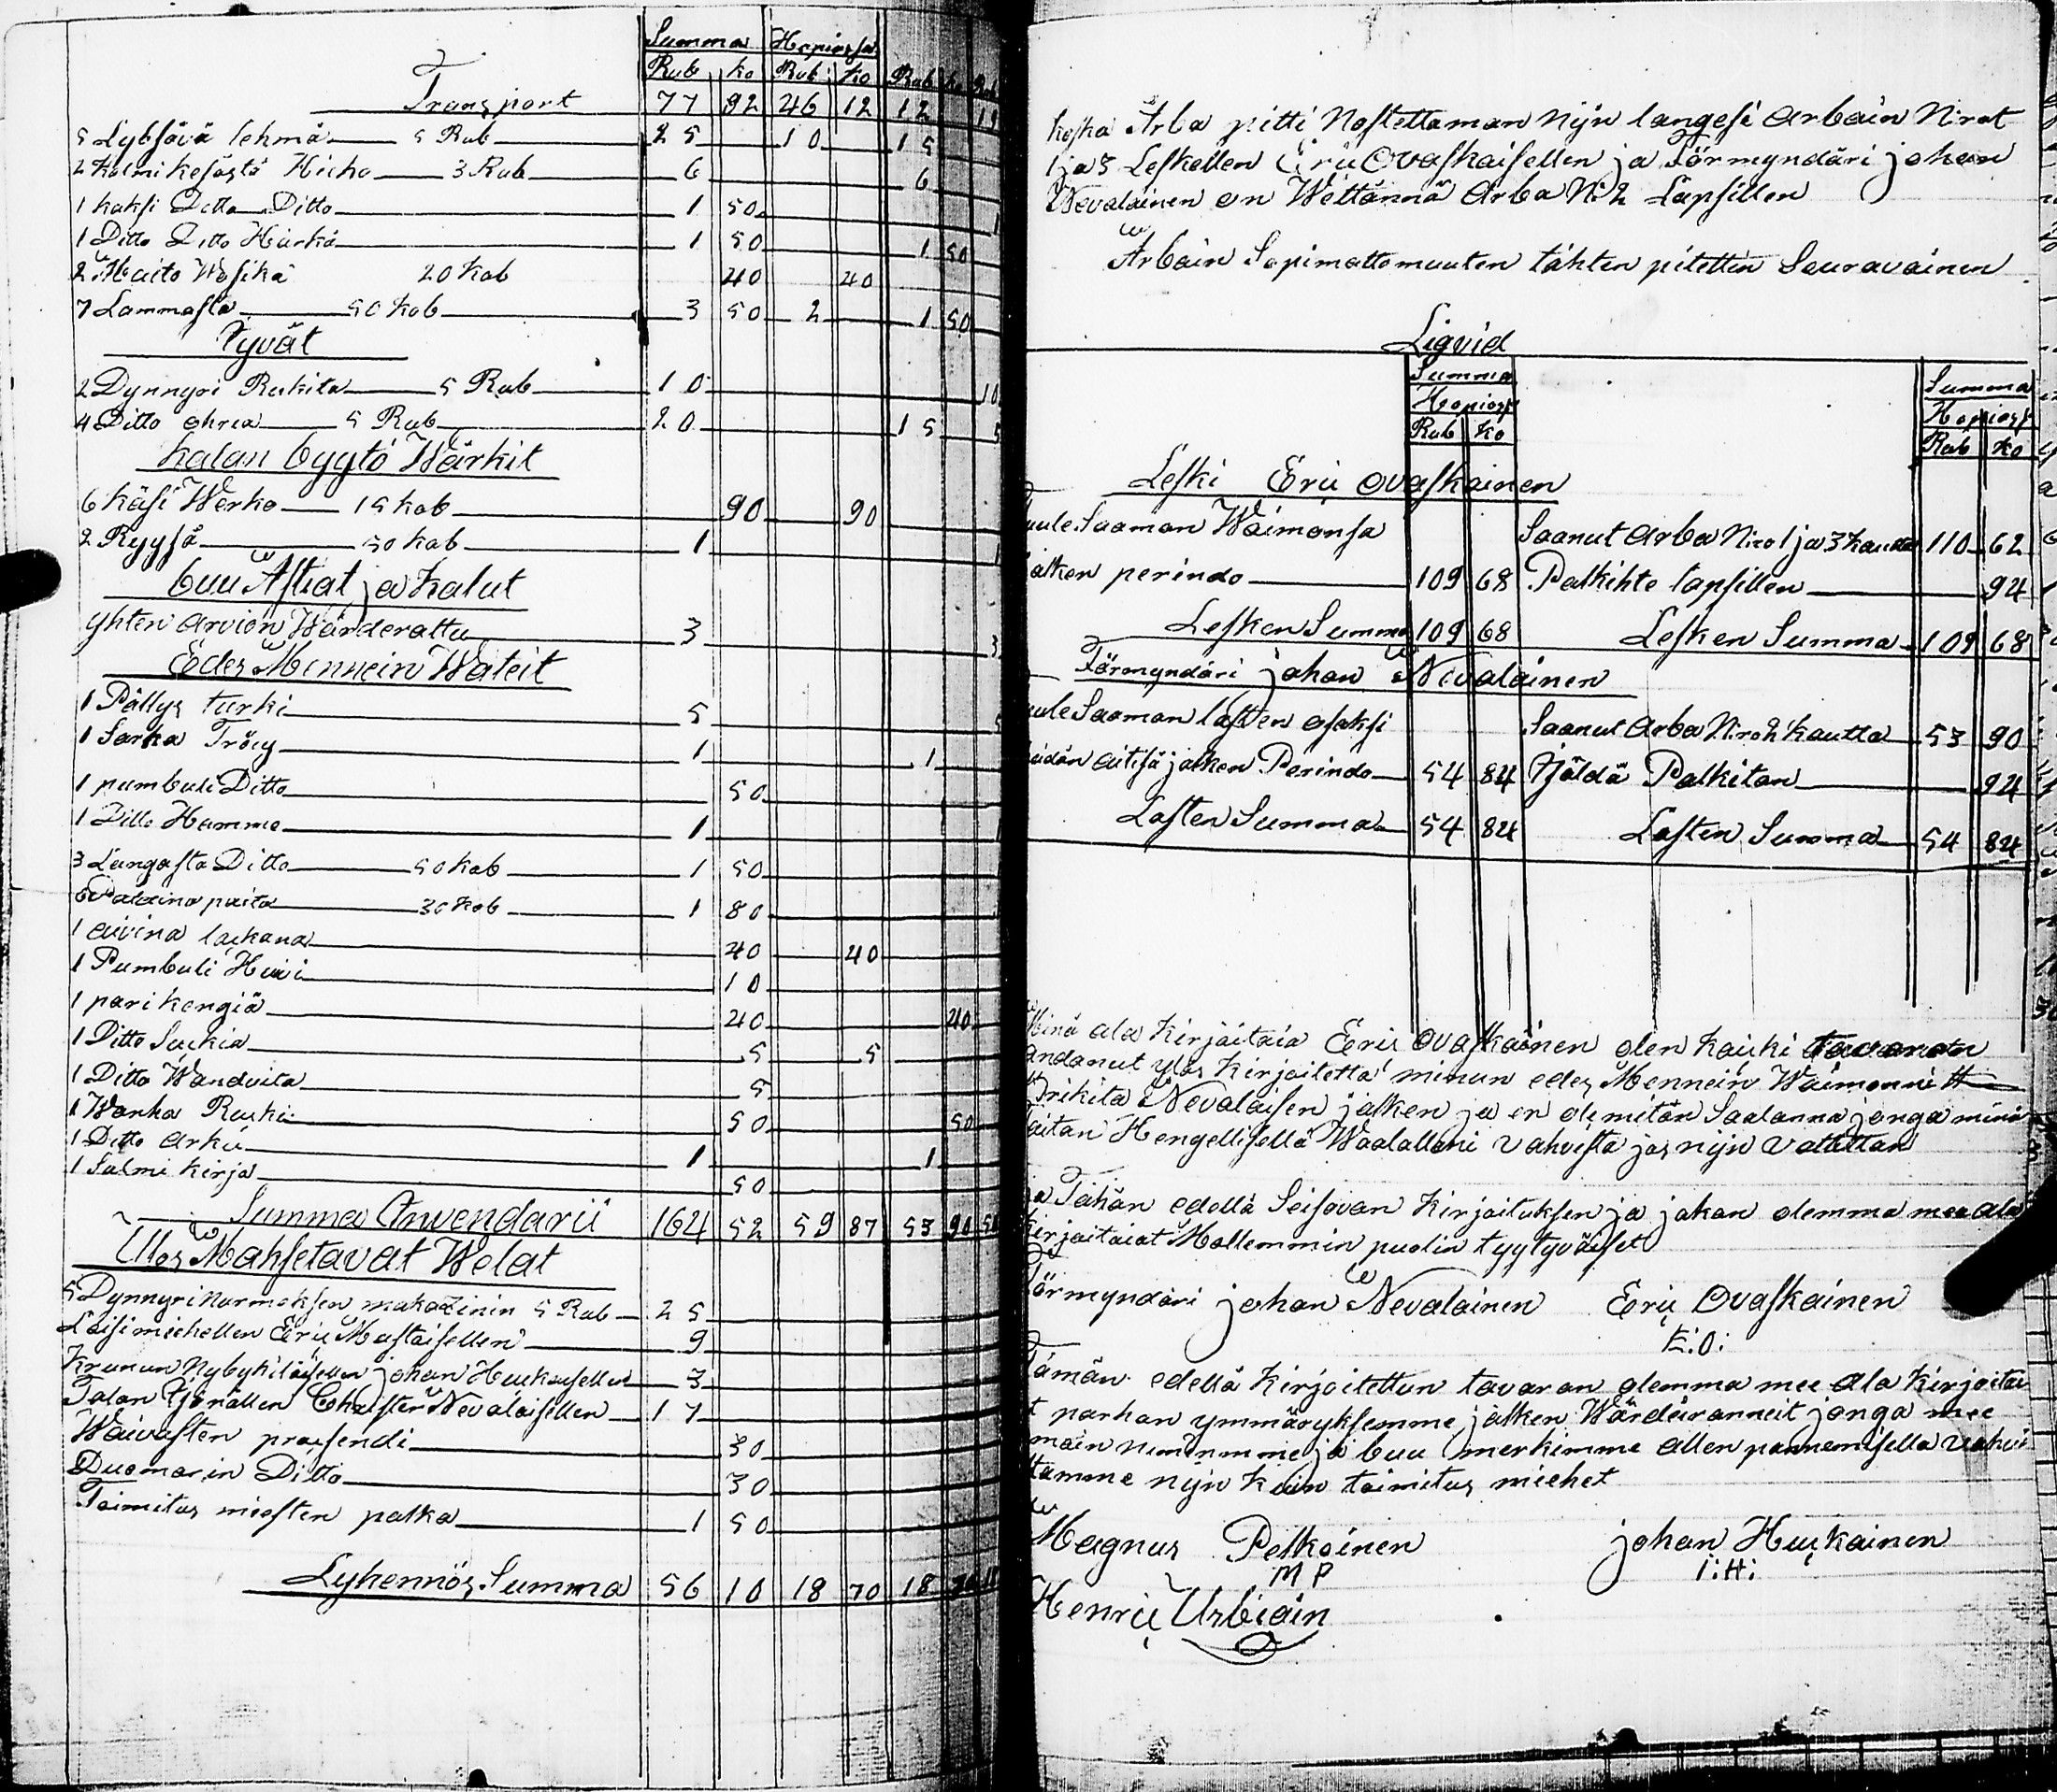 Summa Hopiassa
Rub ko Rub ko Rub ko Rub
Transport 77 92 46 12 12
5 Lybsävä lehmä 5 Rub 25 10 15
2 Kolmi kesästä Hieho 3 Rub 6 6
1 kaksi Ditto Ditto 1 50
1 Ditto Ditto Härkä 1 50 1 50
2 Maito Wasika 20 kob 40 40
7 Lammasta 50 kob 3 50 2 1 50
Jyvät
2 Dynnyri Rukita 5 Rub 10 10
4 Ditto ohria 5 Rub 20 15 5
kalan byytö Wärkit
6 käsi Werko 15 kob 90 90
2 Ryysä 50 kob 1
buu Astiat ja kalut
yhten arvion Wärderattu 3 3
Edes Mennein Wateit
1 Pällys turki 5 5
1 Sarka Tröiy 1 1
1 pumbuli Ditto 50
1 Ditto Hamme 1
3 Langasta Ditto 50 kob 1 50
6 Palaina paita 30 kob 1 80
1 aivina lakana 40 40
1 Pumbuli Huivi 10
1 pari kengiä 40 40
1 Ditto Sukia 5 5
1 Ditto Wandvita 5
1 Wanha Ruki 50 50
1 Ditto arku 1 1
1 Salmi kirja 50
Summa Anvendarii 164 52 59 87 53 90
Ulos Maksetavat Welat
5 Dynnyri Nurmeksen makazinin 5 Rub 25
Läisimiehellen Eriį Mustaisellen 9
Krunun Nybykiläisellen johan Huckaisellen 3
Talan Isänällen Christer Nevalaisellen 17
Waivasten prosendi 30
Duomarin Ditto 30
Toimitus miesten palka 1 50
Lyhennös Summa 56 10 18 70 18
koska Arba pitti Nostettaman Nijn langesi arbain Nrot
1 ja 3 Leskellen Erii Ovaskaisellen ja Förmyndäri johan
Nevalainen on Wettännä Arba No 2 Lapsillen
Arbain Sopimattomuuten tähten pitettin Seuravainen
Liqvid
Summa Summa
Hopiass Hopiass
Rub ko Rub ko
Leski Erii Ovaskainen
tuule Saaman Waimonsa Saanut arba Nro 1 ja 3 kautta 110 62
jälken perindo 109 68 Palkihte lapsillen 94
Lesken Summa 109 68 Lesken Summa 109 68
Förmyndäri johan Nevalainen
tuule Saaman lasten osaksi Saanut arba Nro 2 kautta 53 90
heidän äitisä jälken Perindo 54 84 Isäldä Palkitan 94
Lasten Summa 54 84 Lasten Summa 54 84
Minä ala kirjaitaia Erii Ovaskainen olen kaiki tavaran
andanut ylös kirjoitetta minun edes Mennein Waimonni
Prikita Nevalaisen jälken ja en ole mitän Saalanna jonga minä
taitan Hengellisellä Waalallani vahvista jos nijn vatitan
ja Tähän edellä Seisovan kirjoituksen ja jakan olemma mee ala
kirjoitaiat Mollemmin puolin tyytyväiset
Förmyndäri johan Nevalainen Erii Ovaskainen
E:O:
Tämän edellä kirjoitettun tavaran olemma mee ala kirjoitai
t parhan ymmäryksemme jälken Wärderanneit jonga mee
main nimämme ja buu merkimme allen pannemisella vahvis
tamme nijn kuin toimitus miehet
Magnus Pelkoinen johan Huckainen
MP I:H:
Henrii Urbiain